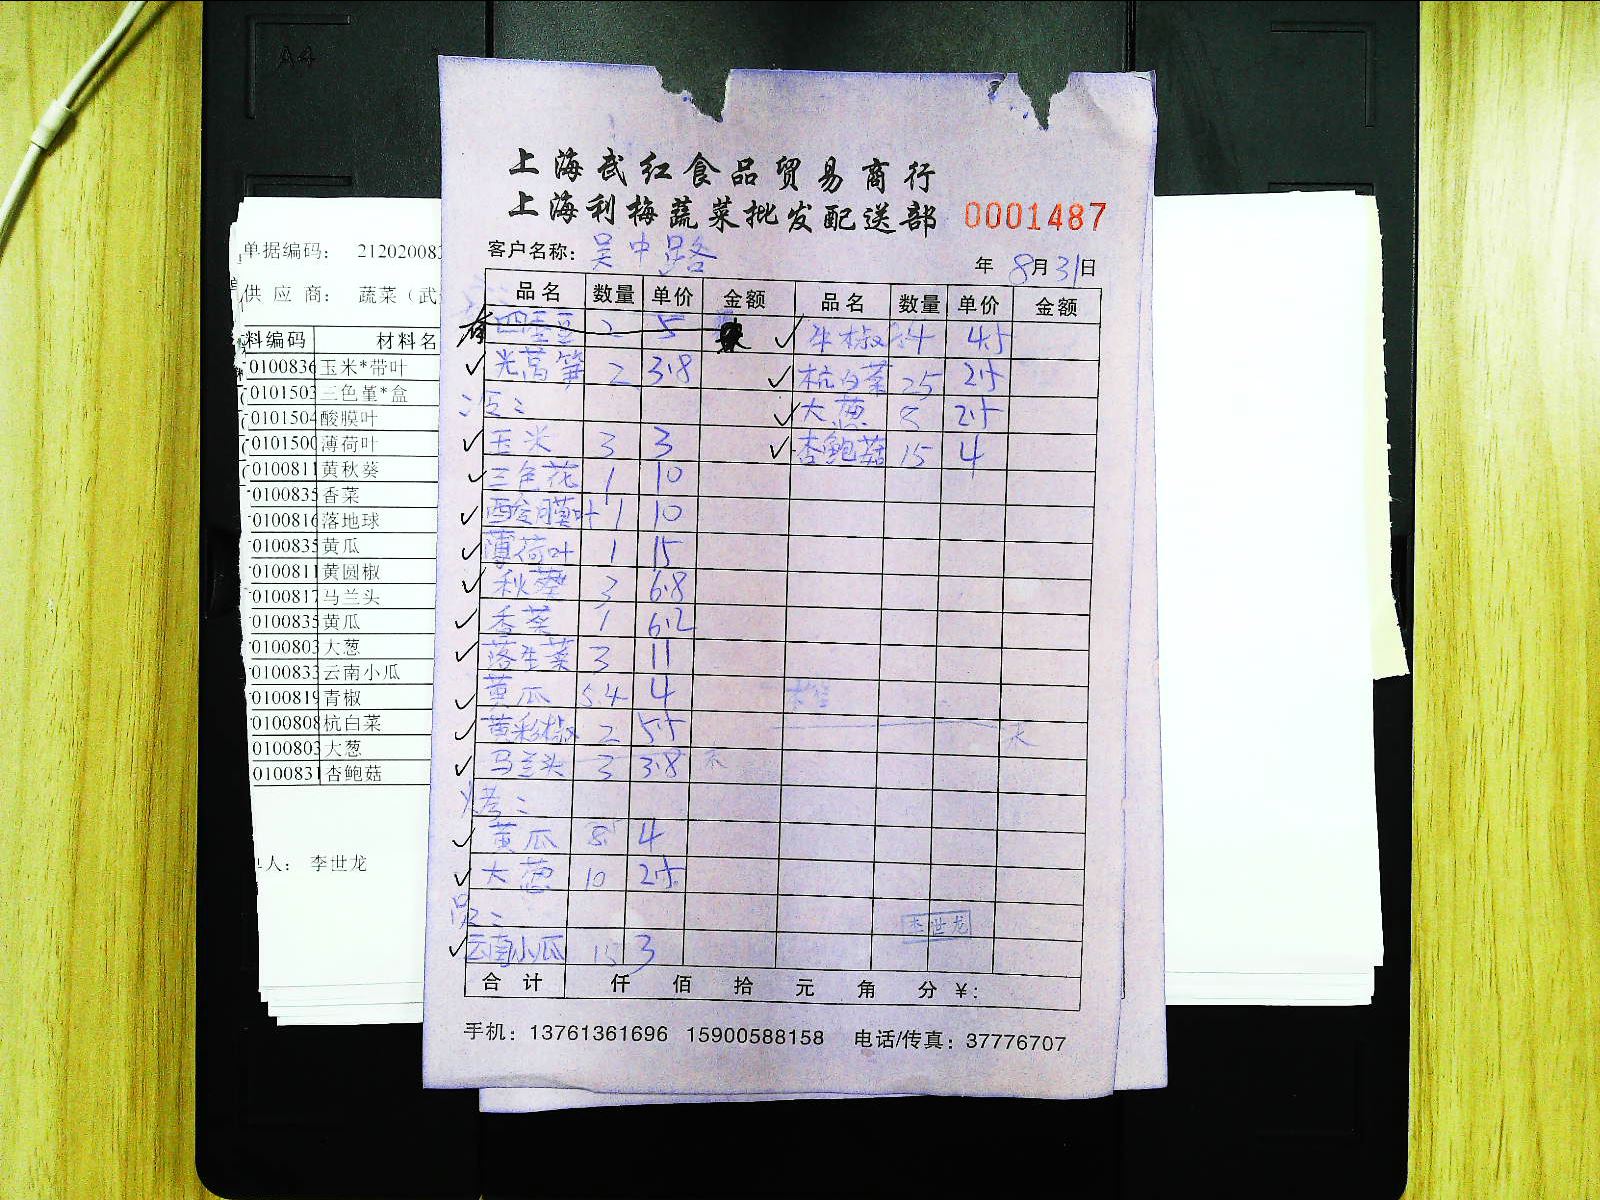 A4
上海武红食品贸易商行
上海利梅蔬菜批发配送部 0001487
客户名称: 吴中路 年 8月31日
品名 数量 单价 金额 品名 数量 单价 金额
四季豆 2 5
光莴笋 2 3.8 杭白菜 25 2.5
大葱 8 2.5
玉米 3 3 杏鲍菇 15 4
三色花 1 10
酸膜叶 1 10
薄荷叶 1 15
秋葵 3 6.8
香菜 1 6.2
落生菜 3 11
黄瓜 5.4 4
黄彩椒 2 5.5
马兰头 3 3.8
烤:
黄瓜 8 4
大葱 10 2.5
云南小瓜 15 3
合计 仟 佰 拾 元 角 分 ¥:
手机: 13761361696 15900588158 电话/传真: 37776707
李世龙
单据编码: 212020083
供应商: 蔬菜（武
料编码 材料名
0100836 玉米*带叶
0101503 三色堇*盒
0101504 酸膜叶
0101500 薄荷叶
0100811 黄秋葵
0100835 香菜
0100816 落地球
0100835 黄瓜
0100811 黄圆椒
0100817 马兰头
0100835 黄瓜
0100803 大葱
0100833 云南小瓜
0100819 青椒
0100808 杭白菜
0100803 大葱
0100831 杏鲍菇
人: 李世龙